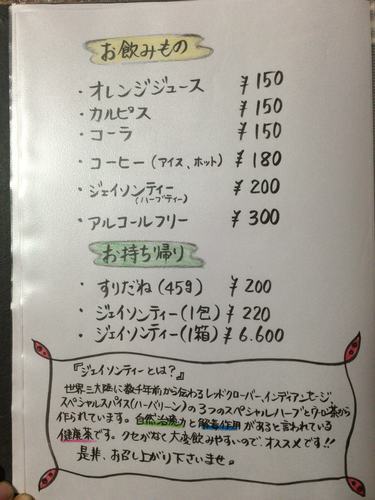 お飲みもの
・オレンジジュース ¥150
・カルピス ¥150
・コーラ ¥150
・コーヒー(アイス、ホット) ¥180
・ジェイソンティー ¥200
(ハーブティー)
・アルコールフリー ¥300
お持ち帰り
・すりだね(45g) ¥200
・ジェイソンティー(1包) ¥220
・ジェイソンティー(1箱) ¥6.600
『ジェイソンティーとは?』
世界三大陸に数千年前から伝わるレッドクローバー、インディアンセージ、
スペシャルスパイス(ハーバリーン)の3つのスペシャルハーブとウーロン茶から
作られています。自然治癒力と解毒作用があると言われている
健康茶です。クセがなく大変飲みやすいので、オススメです!!
是非、お召し上がり下さいませ。